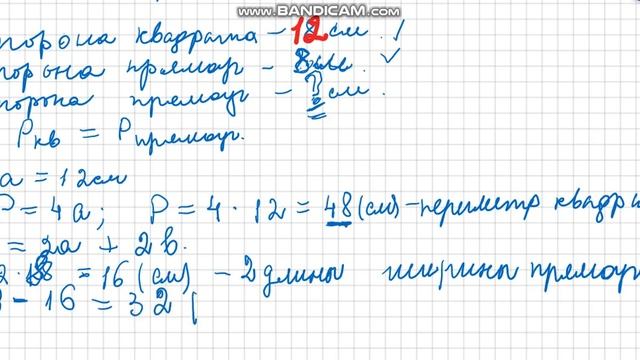 www.BANDICAM.com
торона квадрата - 12 см. ✓
орона прямоуг - 8 см. ✓
орона прямоуг - ? см.
Pкв = Pпрямоуг.
a = 12 см
P = 4a; P = 4 · 12 = 48 (см) - периметр квадра
= 2a + 2b.
2 · 8 = 16 (см) - 2 длины ширины прямоуг
- 16 = 32 (